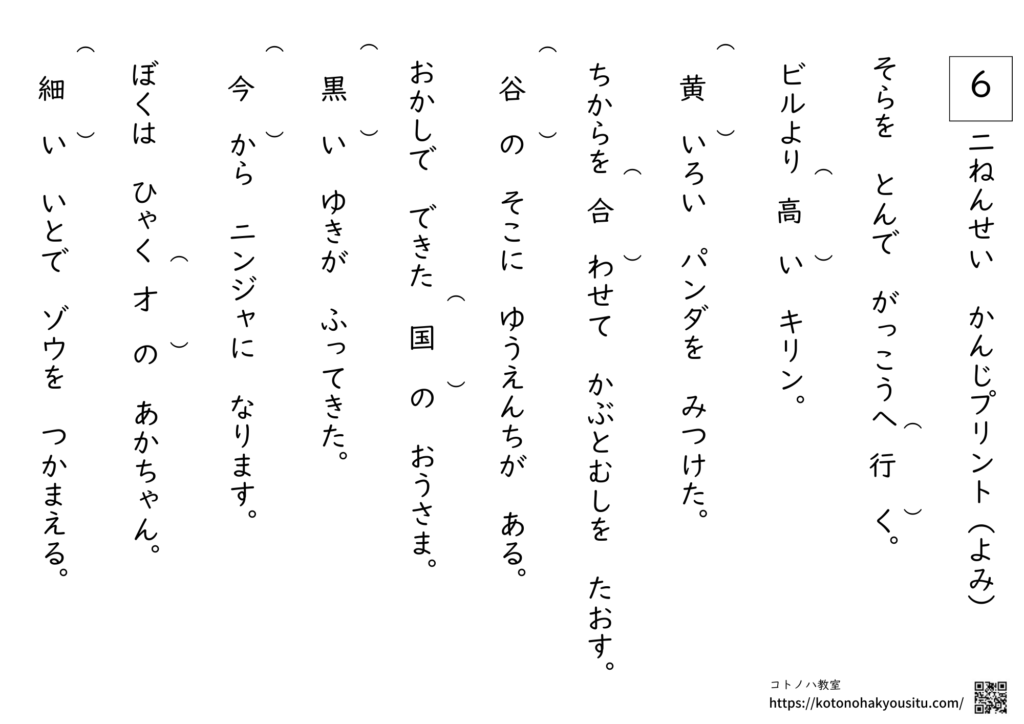 6 二ねんせい かんじプリント(よみ)
そらを とんで がっこうへ 行 く。
ビルより 高 い キリン。
黄 いろい パンダを みつけた。
ちからを 合 わせて かぶとむしを たおす。
谷 の そこに ゆうえんちが ある。
おかしで できた 国 の おうさま。
黒 い ゆきが ふってきた。
今 から ニンジャに なります。
ぼくは ひゃく 才 の あかちゃん。
細 い いとで ゾウを つかまえる。
コトノハ教室
https://kotonohakyousitu.com/